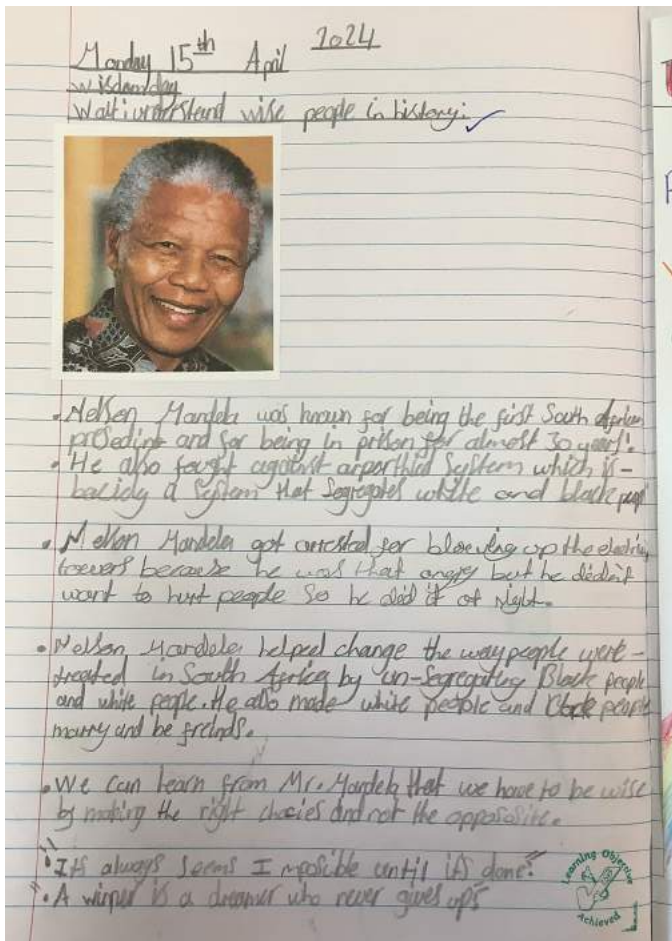 Monday 15th April 2024
wisdomday
Walt: understand wise people in history:
• Nelson Mandela was known for being the first South African
presedint and for being in prison for almost 30 years!
• He also fought against arparthied System which is-
basicly a System that Segregates white and black peopl
• Nelson Mandela got arrested for blowing up the electricity
towers because he was that angry but he didn't
want to hurt people So he did it at night.
• Nelson Mandela helped change the way people were-
treated in South Africa by un-Segregating Black people
and white people. He also made white people and Black people
marry and be freinds.
• We can learn from Mr. Mandela that we have to be wise
by making the right choices and not the opposite.
• "It's always seems Imposible until it's done."
• "A winner is a dreamer who never gives up"
Learning Objective
Achieved